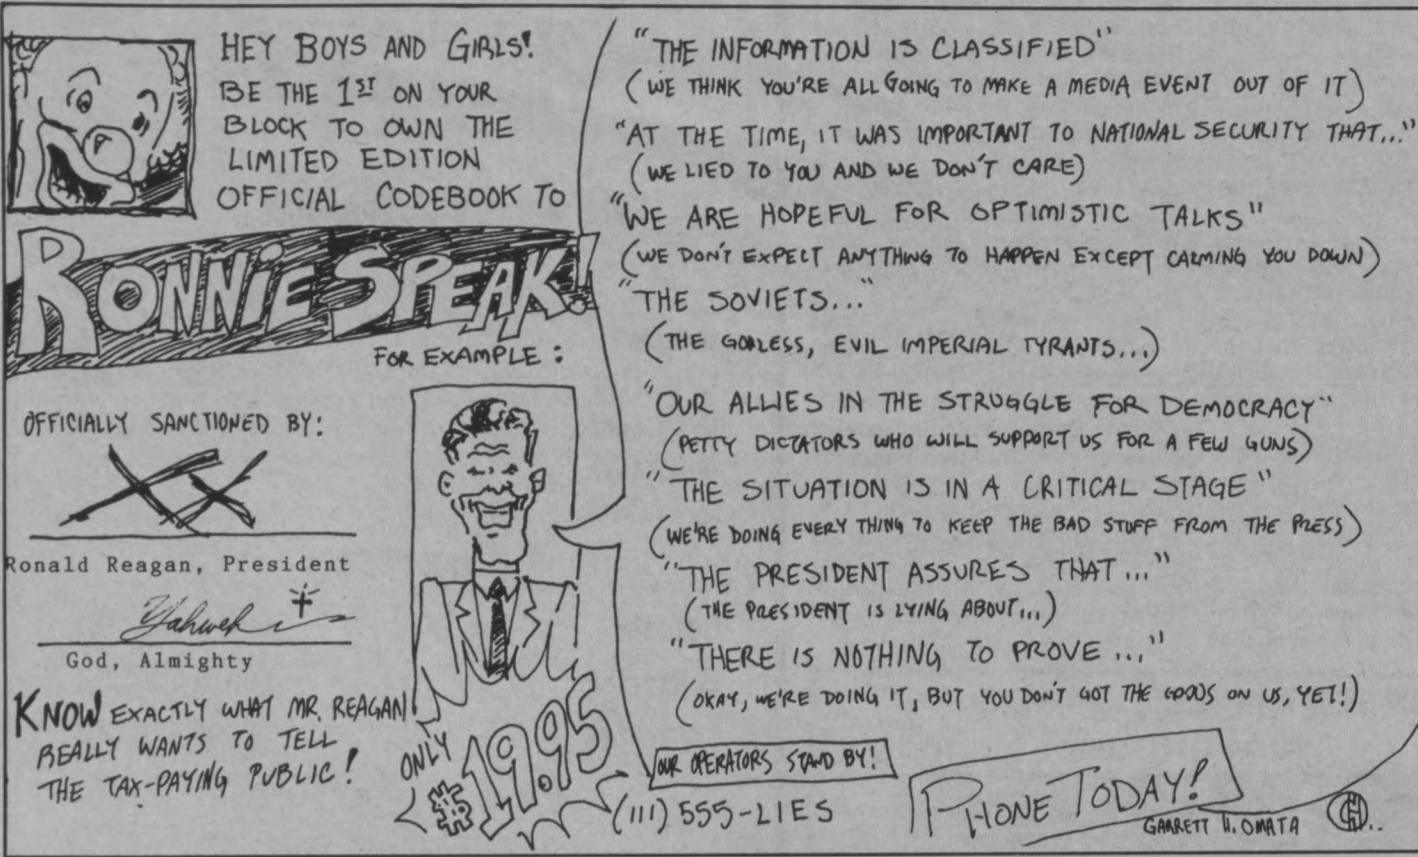 HEY BOYS AND GIRLS!
BE THE 1ST ON YOUR
BLOCK TO OWN THE
LIMITED EDITION
OFFICIAL CODEBOOK TO
RONNIE SPEAK!
FOR EXAMPLE:
OFFICIALLY SANCTIONED BY:
XX
Ronald Reagan, President
Yahweh
God, Almighty
KNOW EXACTLY WHAT MR. REAGAN
REALLY WANTS TO TELL
THE TAX-PAYING PUBLIC!
ONLY
$19.95
"THE INFORMATION IS CLASSIFIED"
(WE THINK YOU'RE ALL GOING TO MAKE A MEDIA EVENT OUT OF IT)
"AT THE TIME, IT WAS IMPORTANT TO NATIONAL SECURITY THAT..."
(WE LIED TO YOU AND WE DON'T CARE)
"WE ARE HOPEFUL FOR OPTIMISTIC TALKS"
(WE DON'T EXPECT ANYTHING TO HAPPEN EXCEPT CALMING YOU DOWN)
"THE SOVIETS..."
(THE GODLESS, EVIL IMPERIAL TYRANTS...)
"OUR ALLIES IN THE STRUGGLE FOR DEMOCRACY"
(PETTY DICTATORS WHO WILL SUPPORT US FOR A FEW GUNS)
"THE SITUATION IS IN A CRITICAL STAGE"
(WE'RE DOING EVERY THING TO KEEP THE BAD STUFF FROM THE PRESS)
"THE PRESIDENT ASSURES THAT..."
(THE PRESIDENT IS LYING ABOUT...)
"THERE IS NOTHING TO PROVE..."
(OKAY, WE'RE DOING IT, BUT YOU DON'T GOT THE GOODS ON US, YET!)
OUR OPERATORS STAND BY!
(111) 555-LIES
PHONE TODAY!
GARRETT H. OMATA